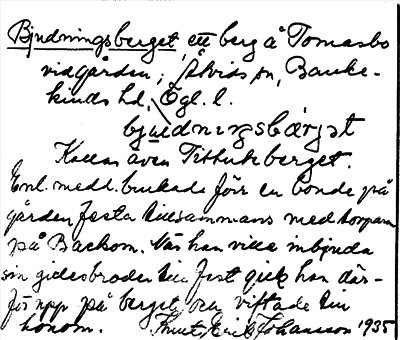 Bjudningsberget, ett berg å Tomasbo
vid gården, Åtvids sn, Banke-
kinds hd, Ögl. l.
bjudnɩŋsbærjət
Kallas även Tittuteberget.
Enl. medd. brukade förr en bonde på
gården festa tillsammans med torparn
på Backom. När han ville inbjuda
sin gillesbroder till fest gick han där-
för upp på berget och viftade till
honom. Knut Erik Johansson 1935